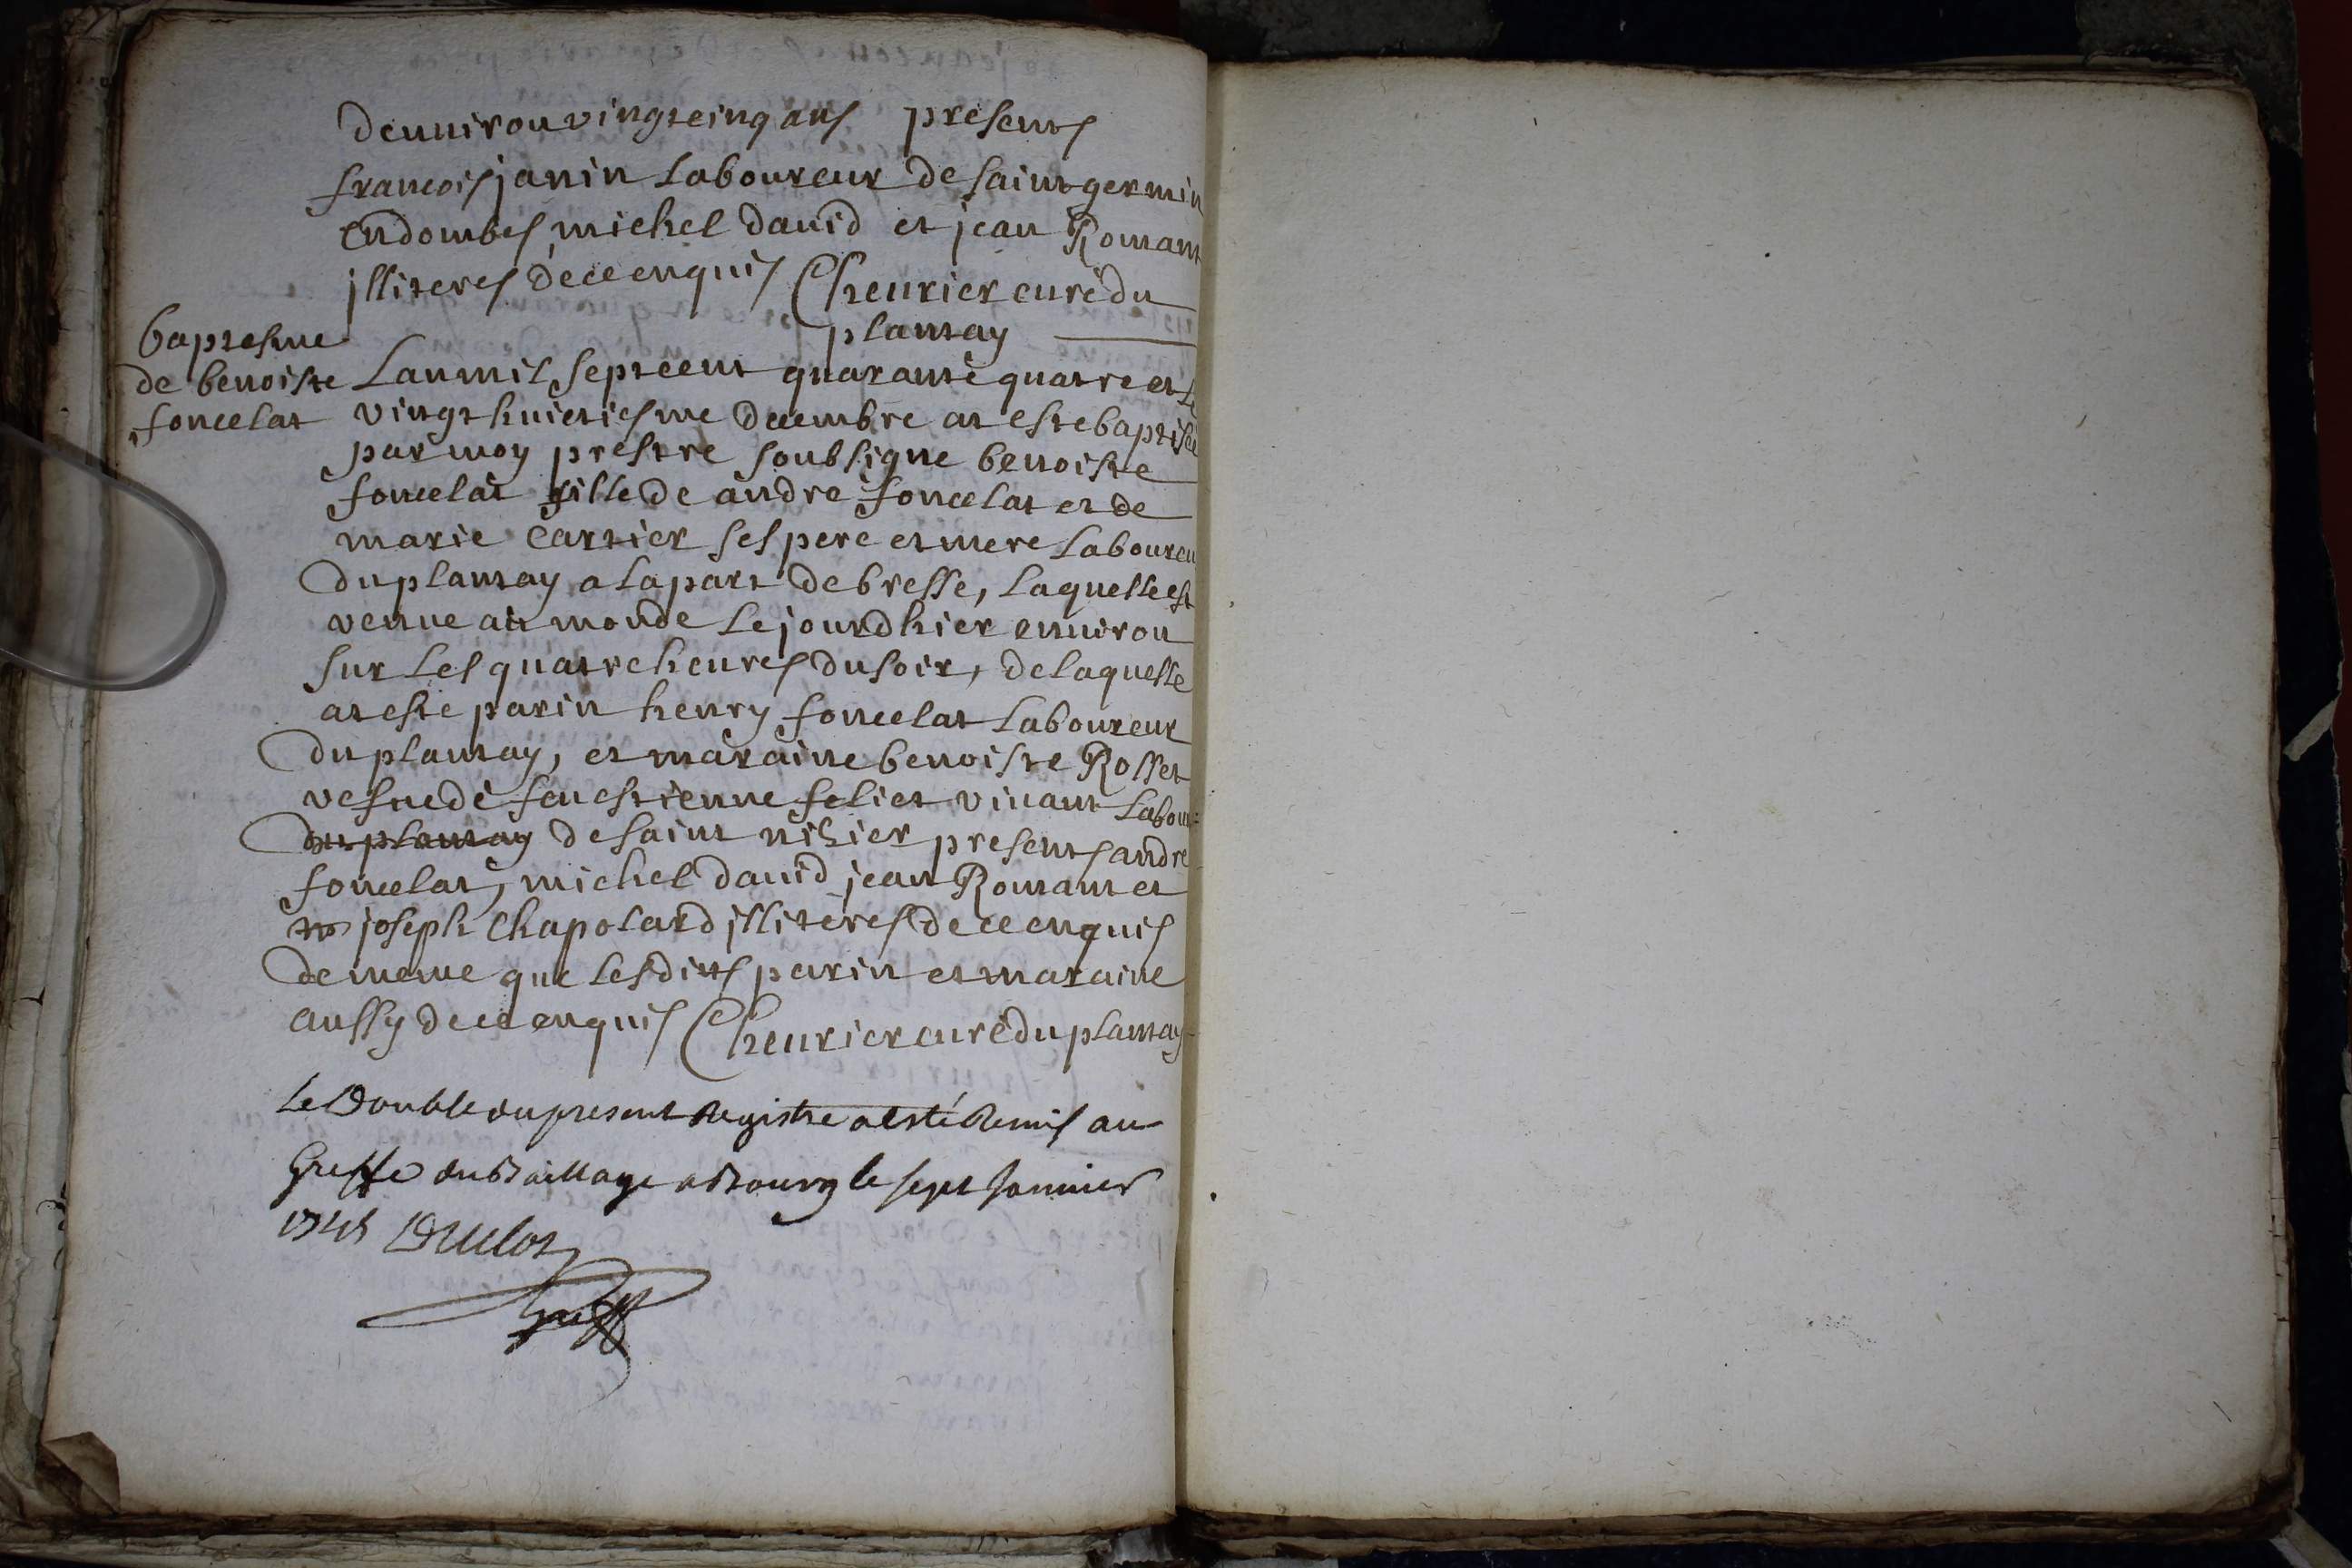 denuiron vingt cinq ans presents
francois janin Laboureur de saint germin
en dombes, michel dauid et jean Romant
jlliteres de ce enquis Cheurier curé du
plantay
baptesme
de benoiste
foncelat
Lan mil sept cent quarante quatre et le
vingt huictiesme decembre at este baptisée
par moy prestre soubsigne benoiste
foncelat fille de andre foncelat et de
marie Cartier ses pere et mere Laboureu
du plantay a la part de bresse, laquelle est
venue au monde le jourdhier enuiron
sur les quatre heures du soir, de laquelle
at este parin henry foncelat Laboureur
du plantay, et maraine benoiste Rosset
vefue de feu estienne feliet viuant Labou=
du plantay de saint nizier presents andre
foncelat, michel dauid jean Romant et
joseph Chapolard jlliteres de ce enquis
de meme que lesdits parin et maraine
aussy de ce enquis Cheurier curé du plantay
Le Double du present Registre a esté Remis au
Greffe du Baillage a Bourg le sept Januier
1745 Duclos
Greff